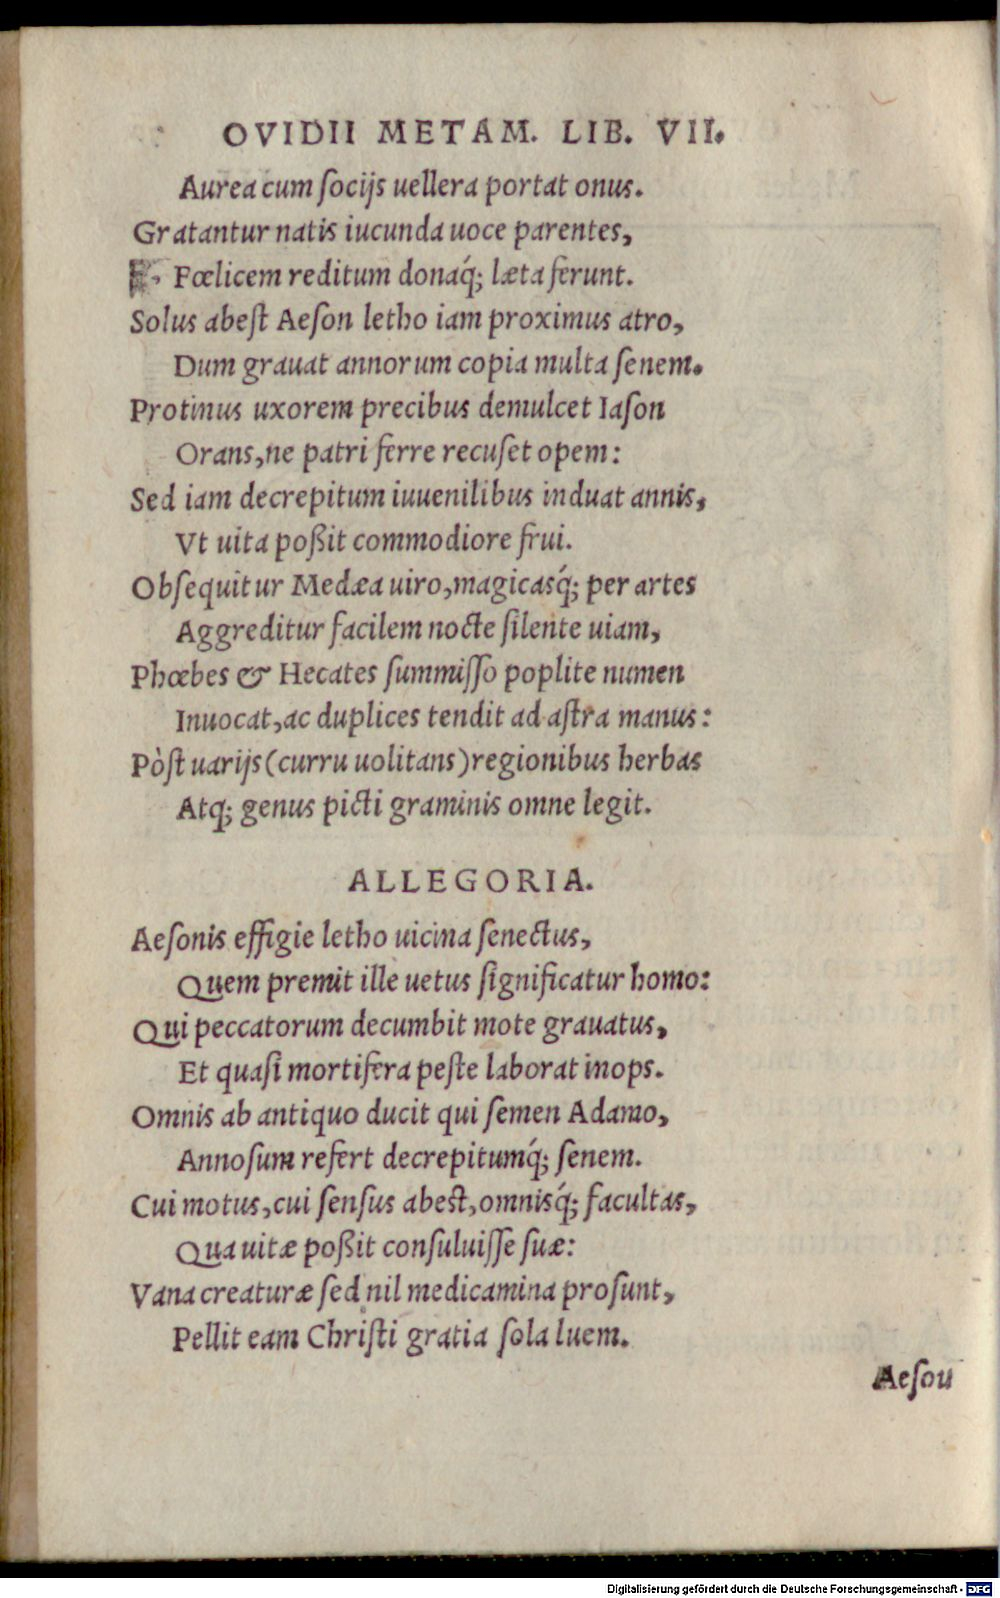 OVIDII METAM. LIB. VII.
Aurea cum ſocijs uellera portat onus.
Gratantur natis iucunda uoce parentes,
Fœlicem reditum donaq́; læta ferunt.
Solus abeſt Aeſon letho iam proximus atro,
Dum grauat annorum copia multa ſenem.
Protinus uxorem precibus demulcet Iaſon
Orans, ne patri ferre recuſet opem:
Sed iam decrepitum iuuenilibus induat annis,
Vt uita poßit commodiore frui.
Obſequitur Medæa uiro, magicasq́; per artes
Aggreditur facilem nocte ſilente uiam,
Phœbes & Hecates ſummiſſo poplite numen
Inuocat, ac duplices tendit ad aſtra manus:
Pòſt uarijs (curru uolitans) regionibus herbas
Atq; genus picti graminis omne legit.
ALLEGORIA.
Aeſonis effigie letho uicina ſenectus,
Quem premit ille uetus ſignificatur homo:
Qui peccatorum decumbit mote grauatus,
Et quaſi mortifera peſte laborat inops.
Omnis ab antiquo ducit qui ſemen Adamo,
Annoſum refert decrepitumq́; ſenem.
Cui motus, cui ſenſus abeſt, omnisq́; facultas,
Qua uitæ poßit conſuluiſſe ſuæ:
Vana creaturæ ſed nil medicamina proſunt,
Pellit eam Chriſti gratia ſola luem.
Aeſou
Digitalisierung gefördert durch die Deutsche Forschungsgemeinschaft - DFG